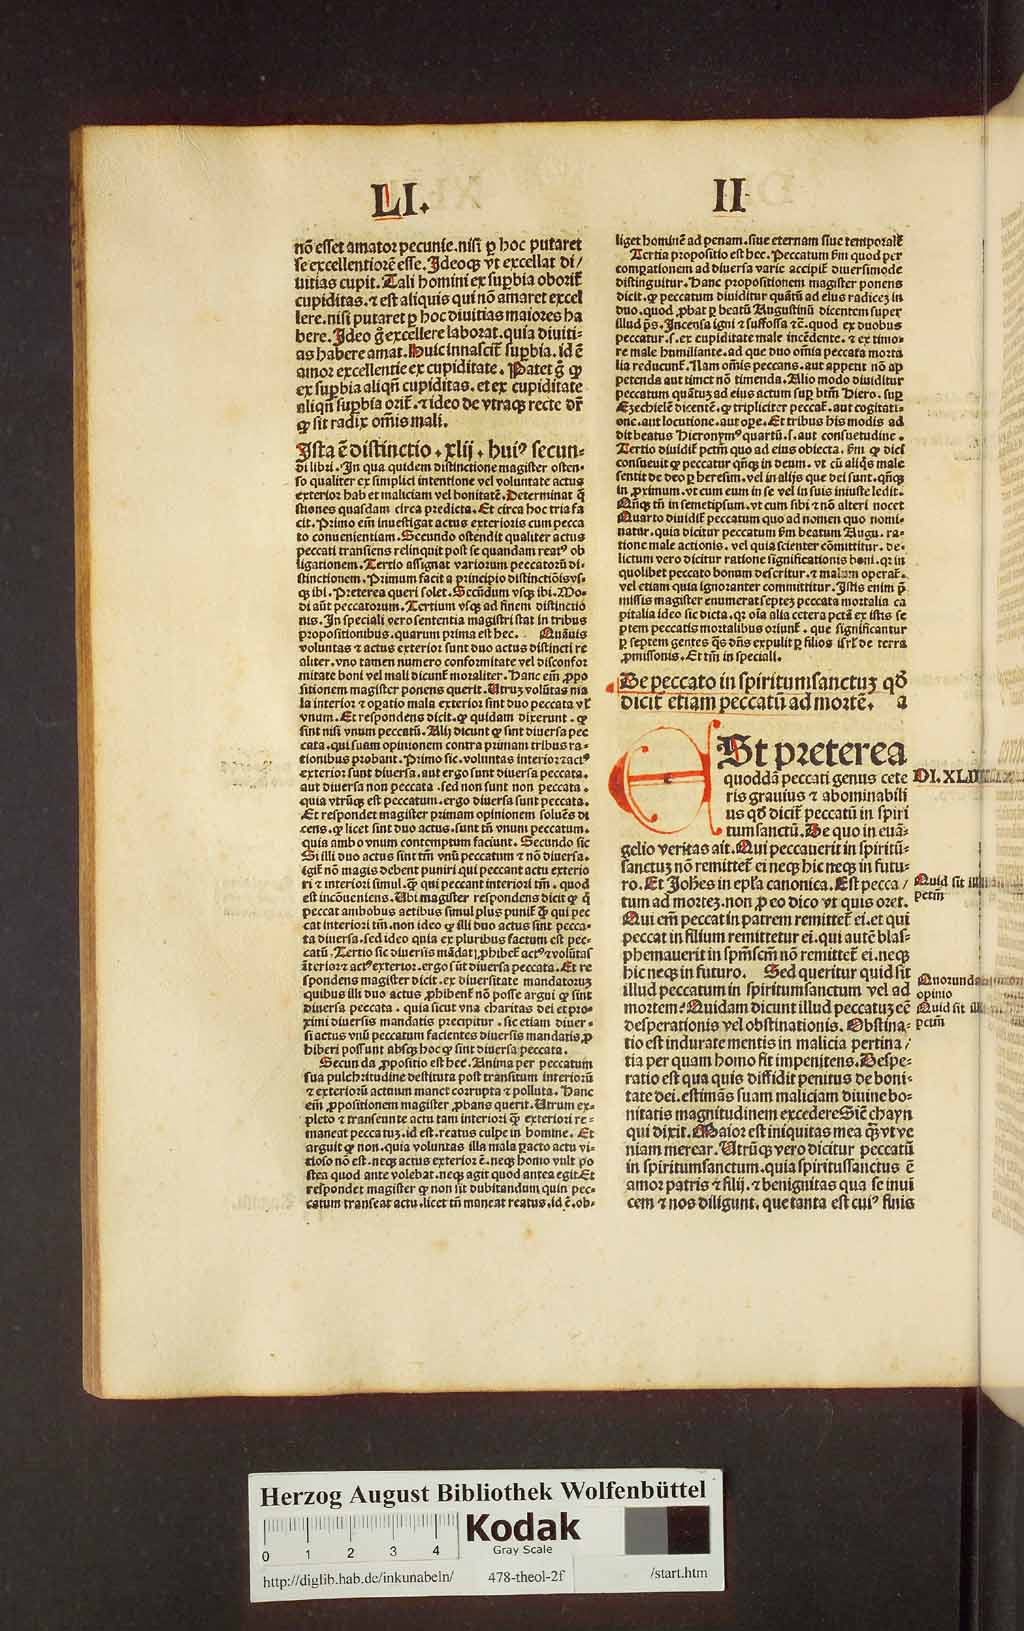 LI. II
nō esset amator pecunie. nisi ꝑ hoc putaret
se excellentiorē esse. Ideoqꝫ vt excellat di/
uitias cupit. Tali homini ex suꝑbia oborit᷑
cupiditas. ⁊ est aliquis qui nō amaret excel
lere. nisi putaret ꝑ hoc diuitias maiores ha
bere. Ideo g̊ excellere laborat. quia diuiti-
as habere amat. Huic innascit᷑ suꝑbia. id ē
amor excellentie ex cupiditate. Patet g̊ ꝙ
ex suꝑbia aliqn̄ cupiditas. et ex cupiditate
aliqn̄ suꝑbia orit᷑. ⁊ ideo de vtraqꝫ recte dr̄
ꝙ sit radix om̄is mali.
Ista ē distinctio. xlij. huiꝰ secun-
di libri. In qua quidem distinctione magister osten-
so qualiter ex simplici intentione vel voluntate actus
exterior hab et maliciam vel bonitatē. Determinat q̄
stiones quasdam circa predicta. Et circa hoc tria fa
cit. Primo em̄ inuestigat actus exterioris cum pecca
to conuenientiam. Secundo ostendit qualiter actus
peccati transiens relinquit post se quandam reatꝰ ob
ligationem. Tertio assignat variorum peccatorū di-
stinctionem. Primum facit a principio distinctiōis vs-
qꝫ ibi. Preterea queri solet. Secūdum vsqꝫ ibi. Mo-
di aūt peccatorum. Tertium vsqꝫ ad finem distinctio
nis. In speciali vero sententia magistri stat in tribus
propositionibus. quarum prima est hec. Quāuis
voluntas ⁊ actus exterior sunt duo actus distincti re
aliter. vno tamen numero conformitate vel disconfor
mitate boni vel mali dicunt᷑ moraliter. Hanc em̄ ꝓpo
sitionem magister ponens querit. Utrum volūtas ma
la interior ⁊ opatio mala exterior sint duo peccata vl᷑
vnum. Et respondens dicit. ꝙ quidam dixerunt. ꝙ
sint nisi vnum peccatū. Alij dicunt ꝙ sint diuersa pec
cata. qui suam opinionem contra primam tribus ra-
tionibus probant. Primo sic. voluntas interior ⁊ actꝰ
exterior sunt diuersa. aut ergo sunt diuersa peccata.
aut diuersa non peccata. sed non sunt non peccata.
quia vtrūqꝫ est peccatum. ergo diuersa sunt peccata.
Et respondet magister primam opinionem soluēs di
cens. ꝙ licet sint duo actus. sunt tn̄ vnum peccatum.
quia ambo vnum contemptum faciunt. Secundo sic
Si illi duo actus sint tm̄ vnū peccatum ⁊ nō diuersa.
igit᷑ nō magis debent puniri qui peccant actu exterio
ri ⁊ interiori simul. ꝙ̄ qui peccant interiori tm̄. quod
est incōueniens. Ubi magister respondens dicit ꝙ q̄
peccat ambobus actibus simul plus punit᷑ ꝙ̄ qui pec
cat interiori tm̄. non ideo ꝙ illi duo actus sint pecca-
ta diuersa. sed ideo quia ex pluribus factum est pec-
catū. Tertio sic diuersis mādat᷑ ꝓhibet᷑ actꝰ ⁊ volūtas
īterior ⁊ actꝰ exterior. ergo sūt diuersa peccata. Et re
spondens magister dicit. ex diuersitate mandatorum
quibus illi duo actus ꝓhibent᷑ nō posse argui ꝙ sint
diuersa peccata. quia sicut vna charitas dei et pro-
ximi diuersis mandatis precipitur. sic etiam diuer-
si actus vnū peccatum facientes diuersis mandatis ꝓ
hiberi possunt absqꝫ hoc ꝙ sint diuersa peccata.
Secunda ꝓpositio est hec. Anima per peccatum
sua pulchritudine destituta post transitum interiorū
⁊ exteriorū actuum manet corrupta ⁊ polluta. Hanc
em̄ ꝓpositionem magister ꝓbans querit. Utrum ex-
pleto ⁊ transeunte actu tam interiori ꝙ̄ exteriori re-
maneat peccatum. id est. reatus culpe in homine. Et
arguit ꝙ non. quia voluntas illa mala ꝑacto actu vi-
tioso nō est. neqꝫ actus exterior ē. neqꝫ homo vult po
stea quod ante volebat. neqꝫ agit quod antea egit. Et
respondet magister ꝙ non sit dubitandum quin pec-
catum transeat actu. licet tn̄ maneat reatus. id ē. ob-
liget hominē ad penam. siue eternam siue temporalē
Tertia propositio est hec. Peccatum ẜm quod per
comparationem ad diuersa varie accipit᷑ diuersimode
distinguitur. Hanc propositionem magister ponens
dicit. ꝙ peccatum diuiditur quātū ad eius radicem in
duo. quod ꝓbat ꝑ beatū Augustinū dicentem super
illud ps̄. Incensa igni ⁊ suffossa ⁊c̄. quod ex duobus
peccatur. s. ex cupiditate male incēdente. ⁊ ex timo-
re male humiliante. ad que duo om̄ia peccata morta
lia reducunt᷑. Nam om̄is peccans. aut appetit nō ap
petenda aut timet nō timenda. Alio modo diuiditur
peccatum quātum ad eius actum suꝑ btm̄ Hiero. suꝑ
Ezechielē dicentē. ꝙ tripliciter peccat᷑. aut cogitati-
one. aut locutione. aut oꝑe. Et tribus his modis ad
dit beatus Hieronymꝰ quartū. s. aut consuetudine.
Tertio diuidit᷑ pctm̄ quo ad eius obiecta. ẜm ꝙ dici
consueuit ꝙ peccatur qn̄qꝫ in deum. vt cū aliq̄s male
sentit de deo ꝑ heresim. vel in alijs que dei sunt. qn̄qꝫ
in ꝓximum. vt cum eum in se vel in suis iniuste ledit.
Qn̄qꝫ tn̄ in semetipsum. vt cum sibi ⁊ nō alteri nocet
Quarto diuidit᷑ peccatum quo ad nomen quo nomi-
natur. quia dicitur peccatum ẜm beatum Augu. ra-
tione male actionis. vel quia scienter cōmittitur. de-
lictum vero dicitur ratione significationis boni. qꝛ in
quolibet peccato bonum deseritur. ⁊ malum operat᷑.
vel etiam quia ignoranter committitur. Istis enim p̄
missis magister enumerat septem peccata mortalia ca
pitalia ideo sic dicta. qꝛ oīa alia cetera pctā ex istis se
ptem peccatis mortalibus oriunt᷑. que significantur
ꝑ septem gentes q̄s dn̄s expulit ꝑ filios isrl̄ de terra
ꝓmissonis. Et tm̄ in speciali.
De peccato in spiritumsanctuꝫ qd̄
dicit᷑ etiam peccatū ad mortē. a
ESt preterea
quoddā peccati genus cete
ris grauius ⁊ abominabili
us qd̄ dicit᷑ peccatū in spiri
tumsanctū. De quo in euā-
gelio veritas ait. Qui peccauerit in spiritū-
sanctuꝫ nō remittet᷑ ei neqꝫ hic neqꝫ in futu-
ro. Et Joh̄es in epl̄a canonica. Est pecca/
tum ad morteꝫ. non ꝓ eo dico vt quis oret.
Qui em̄ peccat in patrem remittet᷑ ei. et qui
peccat in filium remittetur ei. qui autē blas-
phemauerit in spm̄scm̄ nō remittet᷑ ei. neqꝫ
hic neqꝫ in futuro. Sed queritur quid sit
illud peccatum in spiritumsanctum vel ad
mortem? Quidam dicunt illud peccatuꝫ eē
desperationis vel obstinationis. Obstina-
tio est indurate mentis in malicia pertina/
tia per quam homo fit impenitens. Despe-
ratio est qua quis diffidit penitus de boni-
tate dei. estimās suam maliciam diuine bo-
nitatis magnitudinem excedere Sic̄ chayn
qui dixit. Maior est iniquitas mea qꝫ̄ vt ve
niam merear. Utrūqꝫ vero dicitur peccatū
in spiritumsanctum. quia spiritussanctus ē
amor patris ⁊ filij. ⁊ benignitas qua se inui
cem ⁊ nos diligunt. que tanta est cuiꝰ finis
DI. XLII
Quid sit
pctm̄
Quorunda
opinio
Quid sit
pctm̄
Herzog August Bibliothek Wolfenbüttel
0 1 2 3 4
Kodak
Gray Scale
http://diglib.hab.de/inkunabeln/ 478-theol-2f /start.htm